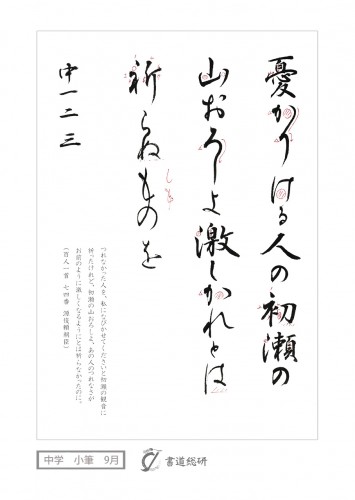 憂かりける人の初瀬の
山おろしよ激しかれとは
祈らぬものを
中一二三
つれなかった人を、私になびかせてくださいと初瀬の観音に
祈ったけれど、初瀬の山おろしよ、あの人のつれなさが
お前のように激しくなるようにとは祈らなかったのに。
(百人一首 七四番 源俊頼朝臣)
中学 小筆 9月
書道総研